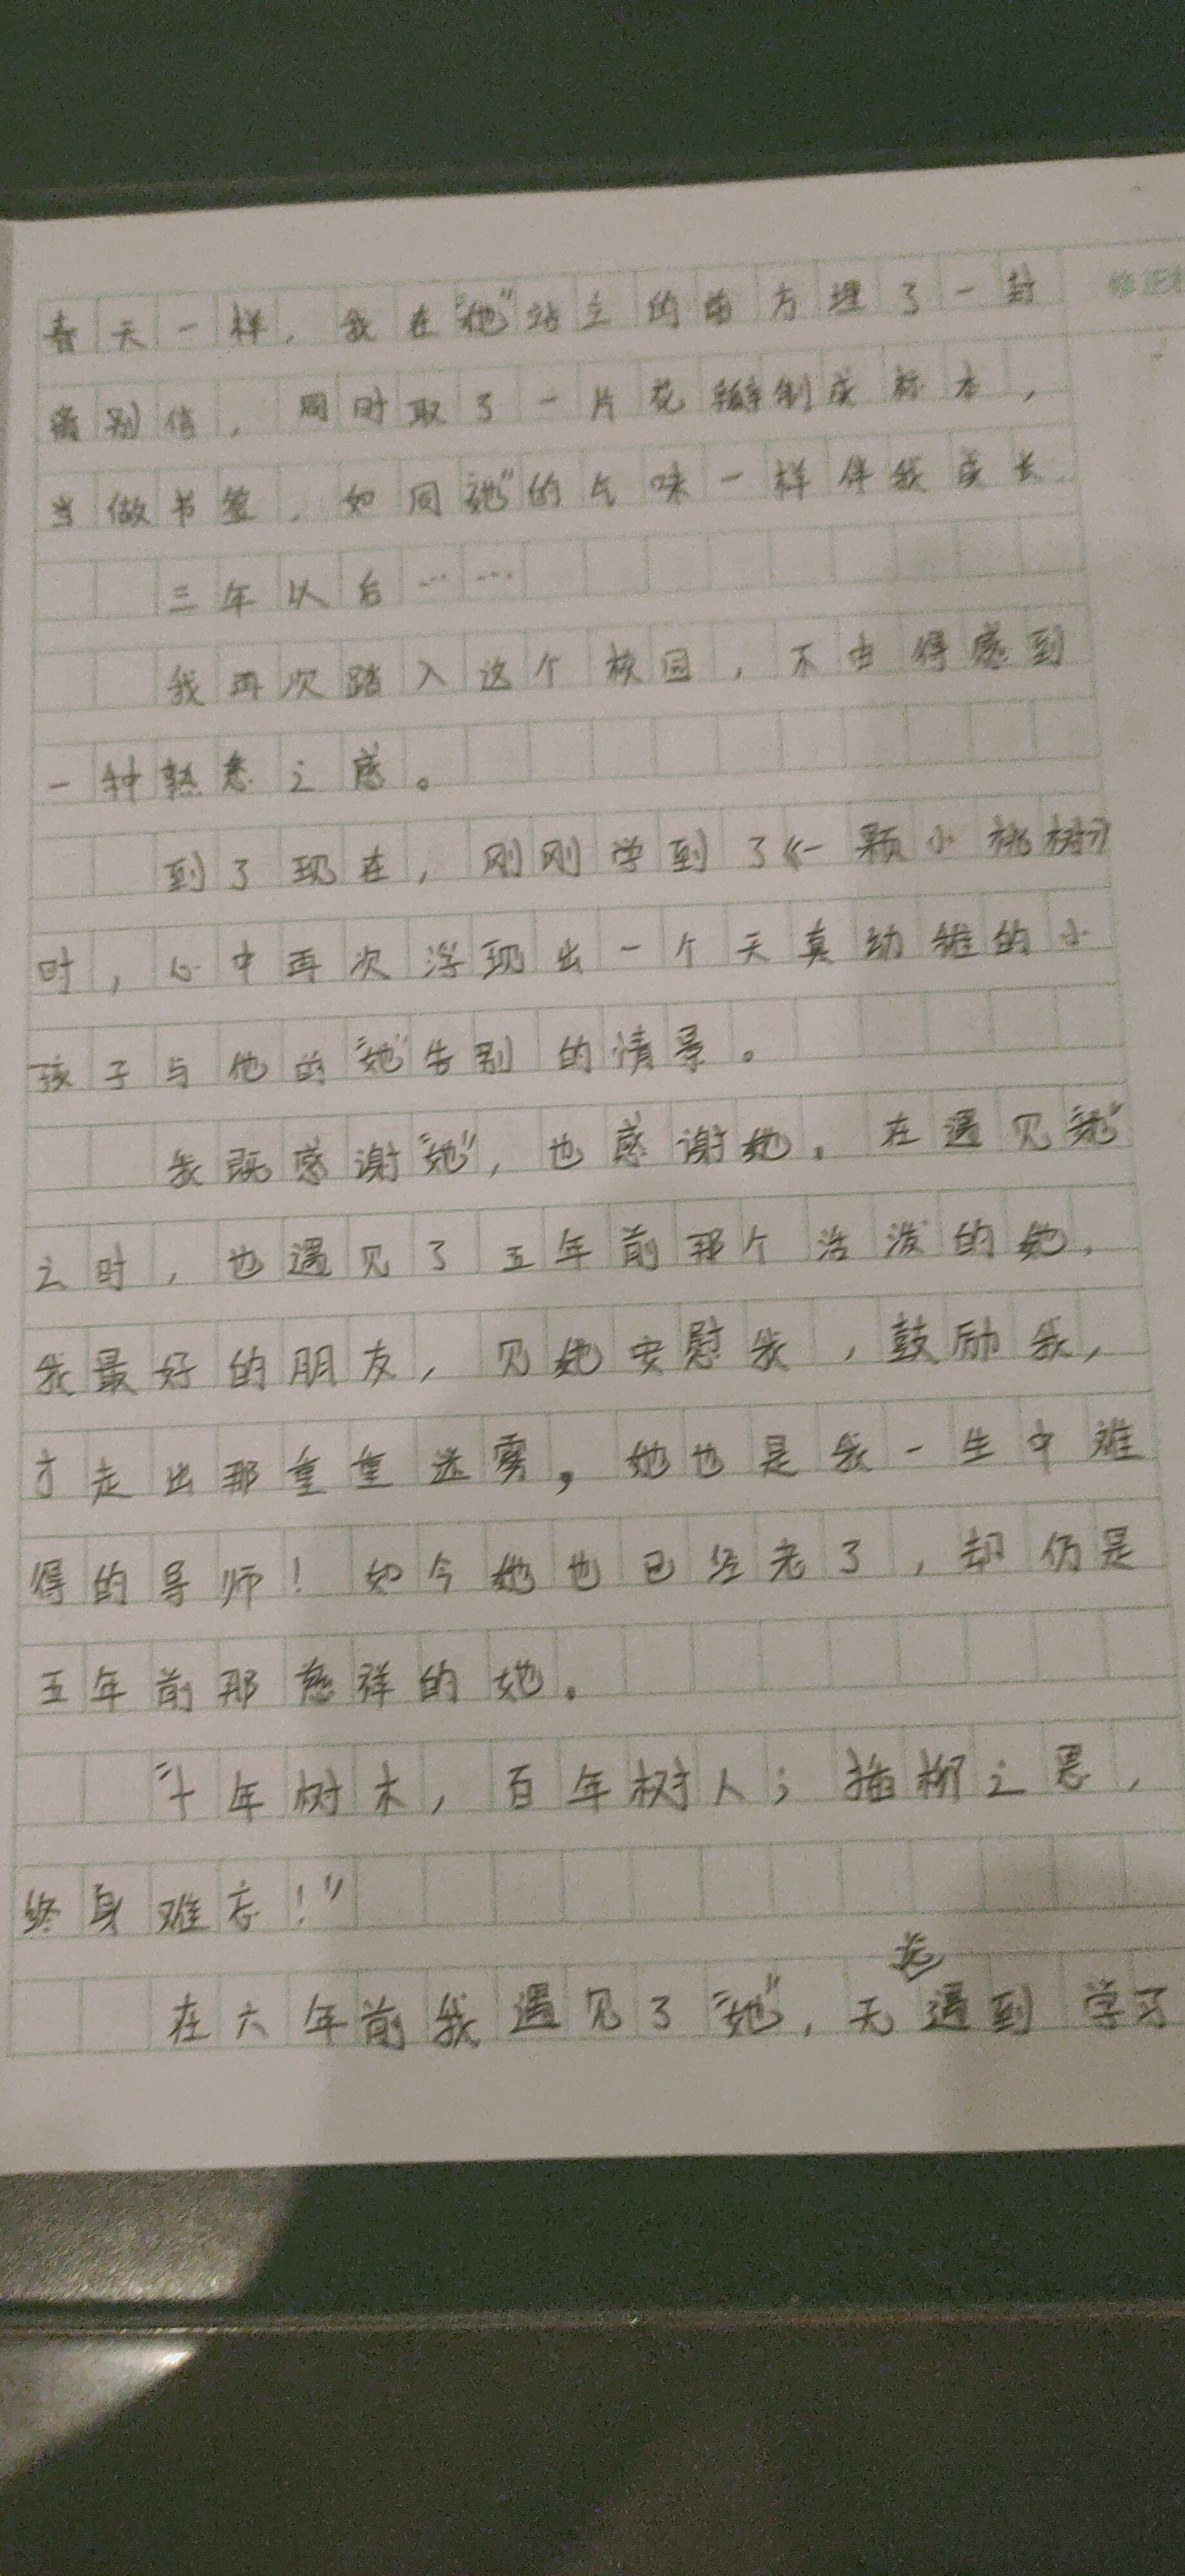 春天一样，我在“她”站立的前方埋了一封
离别信，同时取了一片花瓣制成标本，
当做书签，如同“她”的气味一样伴我成长
三年以后……
我再次踏入这个校园，不由得感到
一种熟悉之感。
到了现在，刚刚学到了《一颗小桃树》
时，心中再次浮现出一个天真幼稚的小
孩子与他的“她”告别的情景。
我既感谢“她”，也感谢她。在遇见“她”
之时，也遇见了五年前那个活泼的她，
我最好的朋友，见她安慰我，鼓励我，
才走出那重重迷雾，她也是我一生中难
得的导师！如今她也已经老了，却仍是
五年前那慈祥的她。
“十年树木，百年树人；插柳之恩，
终身难忘！”
在六年前我遇见了“她”，无论遇到学习